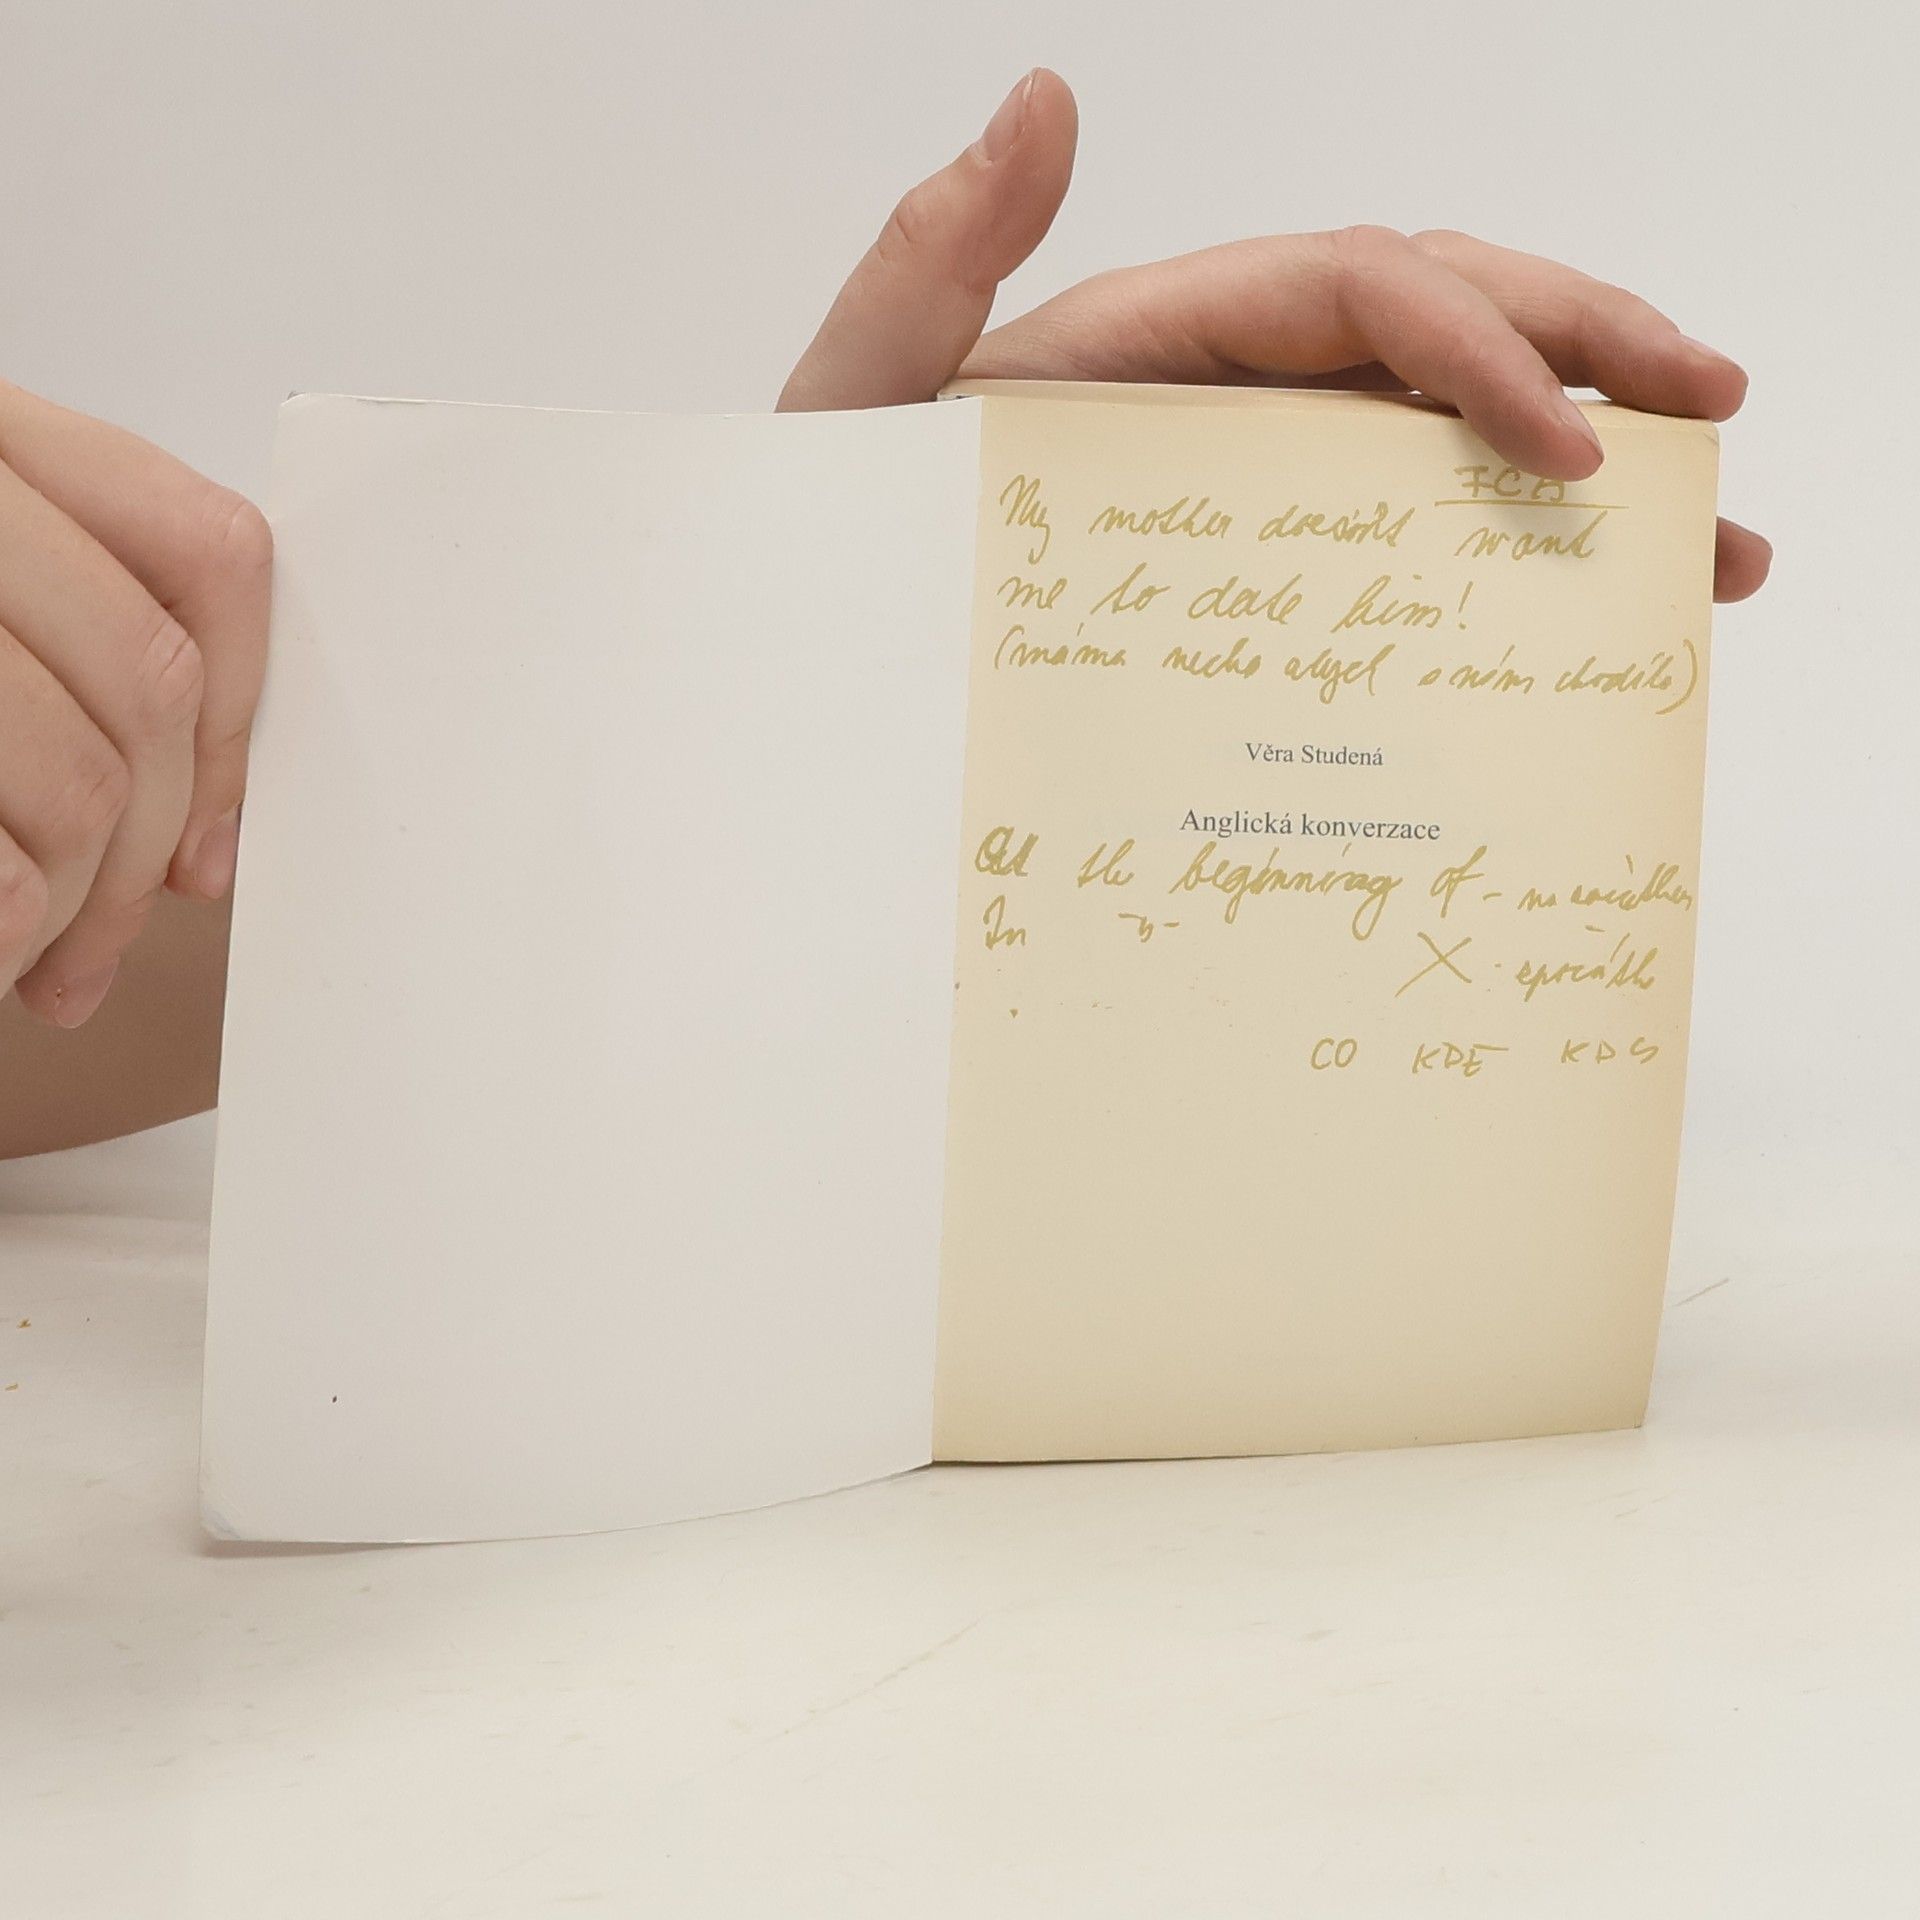 FCA
My mother doesn't want
me to date him!
(máma nechce abych s ním chodila)
Věra Studená
Anglická konverzace
At the beginning of - na začátku
In -"- X - zpočátku
CO KDE KDY